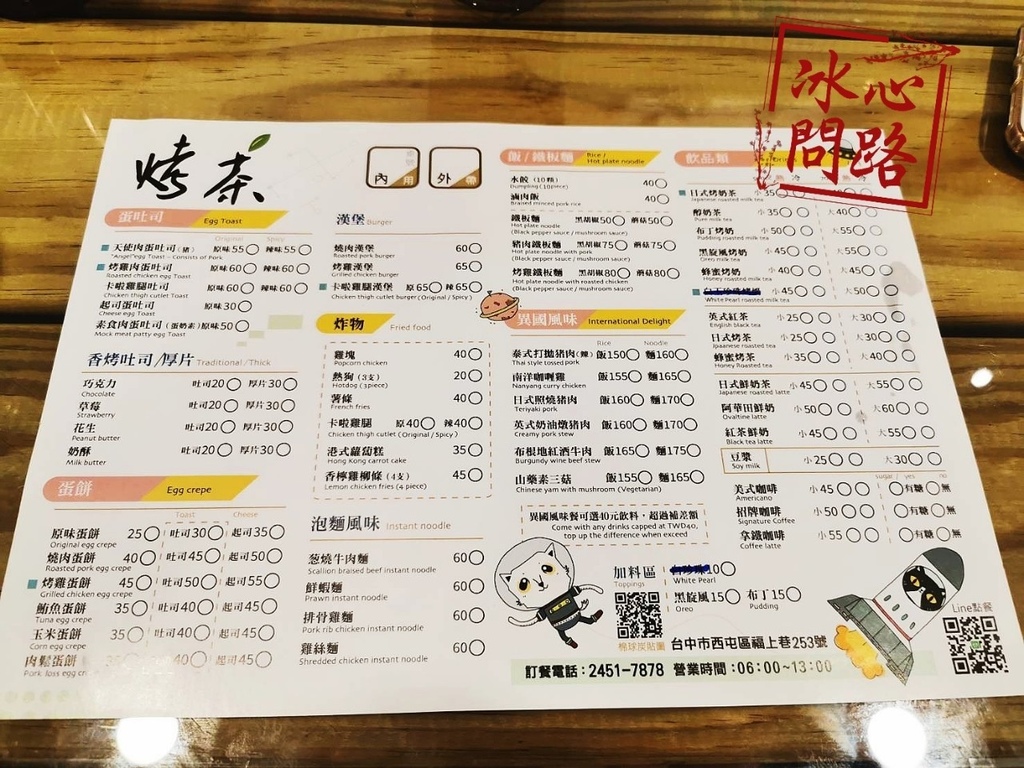 冰心
問路
烤茶
內用
外帶
蛋吐司 Egg Toast
Original Spicy
天使肉蛋吐司(豬) 原味55 辣味55
"Angel"egg Toast - Consists of Pork
烤雞肉蛋吐司 原味60 辣味60
Roasted chicken egg Toast
卡啦雞腿吐司 原味60 辣味60
Chicken thigh cutlet Toast
起司蛋吐司 原味30
Cheese egg Toast
素食肉蛋吐司(蛋奶素) 原味50
Mock meat patty egg Toast
香烤吐司/厚片 Traditional/Thick
巧克力 吐司20 厚片30
Chocolate
草莓 吐司20 厚片30
Strawberry
花生 吐司20 厚片30
Peanut butter
奶酥 吐司20 厚片30
Milk butter
蛋餅 Egg crepe
Toast Cheese
原味蛋餅 25 吐司30 起司35
Original egg crepe
燒肉蛋餅 40 吐司45 起司50
Roasted pork egg crepe
烤雞蛋餅 45 吐司50 起司55
Grilled chicken egg crepe
鮪魚蛋餅 35 吐司40 起司45
Tuna egg crepe
玉米蛋餅 35 吐司40 起司45
Corn egg crepe
肉鬆蛋餅 40 起司45
Pork floss egg cre
漢堡 Burger
燒肉漢堡 60
Roasted pork burger
烤雞漢堡 65
Grilled chicken burger
卡啦雞腿漢堡 原65 辣65
Chicken thigh cutlet burger(Original / Spicy)
炸物 Fried food
雞塊 40
Popcorn chicken
熱狗(3支) 20
Hotdog (3piece)
薯條 40
French fries
卡啦雞腿 原40 辣40
Chicken thigh cutlet (Original / Spicy)
港式蘿蔔糕 35
Hong Kong carrot cake
香檸雞柳條(4支) 45
Lemon chicken fries (4 piece)
泡麵風味 Instant noodle
蔥燒牛肉麵 60
Scallion braised beef instant noodle
鮮蝦麵 60
Prawn instant noodle
排骨雞麵 60
Pork rib chicken instant noodle
雞絲麵 60
Shredded chicken instant noodle
飯/鐵板麵 Rice / Hot plate noodle
水餃(10顆) 40
Dumpling (10piece)
滷肉飯 40
Braised minced pork rice
鐵板麵 黑胡椒50 蘑菇50
Hot plate noodle
(Black pepper sauce / mushroom sauce)
豬肉鐵板麵 黑胡椒75 蘑菇75
Hot plate noodle with pork
(Black pepper sauce / mushroom sauce)
烤雞鐵板麵 黑胡椒80 蘑菇80
Hot plate noodle with roasted chicken
(Black pepper sauce / mushroom sauce)
異國風味 International Delight
Rice Noodle
泰式打拋豬肉(辣) 飯150 麵160
Thai style tossed pork
南洋咖喱雞 飯155 麵165
Nanyang curry chicken
日式照燒豬肉 飯160 麵170
Teriyaki pork
英式奶油燉豬肉 飯160 麵170
Creamy pork stew
布根地紅酒牛肉 飯165 麵175
Burgundy wine beef stew
山藥素三菇 飯155 麵165
Chinese yam with mushroom (Vegetarian)
異國風味餐可選40元飲料，超過補差額
Come with any drinks capped at TWD40,
top up the difference when exceed
飲品類
日式烤奶茶 小35
Japanese roasted milk tea
醇奶茶 小35 大40
Pure milk tea
布丁烤奶 小50 大55
Pudding roasted milk tea
黑旋風烤奶 小45 大50
Oreo milk tea
蜂蜜烤奶 小40 大45
Honey roasted milk tea
大50
White Pearl roasted milk tea
英式紅茶 小25 大30
English black tea
日式烤茶 小25 大30
Jpaanese roasted tea
蜂蜜烤茶 小35 大40
Honey Roasted tea
日式鮮奶茶 小45 大55
Japanese roasted latte
阿華田鮮奶 小50 大60
Ovaltine latte
紅茶鮮奶 小45 大55
Black tea latte
豆漿 小25 大30
Soy milk
sugar / yes no
美式咖啡 小45 有糖 無
Americano
招牌咖啡 小50 有糖 無
Signature Coffee
拿鐵咖啡 小55 有糖 無
Coffee latte
加料區 10
Toppings White Pearl
黑旋風15 布丁15
Oreo Pudding
棉球炭貼圖
台中市西屯區福上巷253號
訂餐電話：2451-7878 營業時間：06:00~13:00
Line點餐